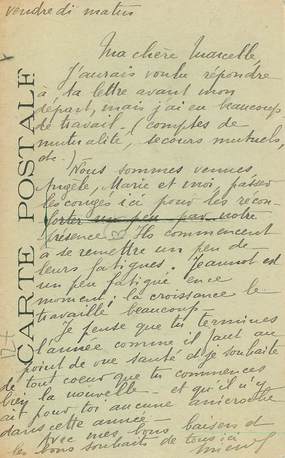 vendredi matin
CARTE POSTALE
Ma chère Marcelle
J'aurais voulu répondre
à ta lettre avant mon
départ, mais j'ai eu beaucoup
de travail (comptes de
mutualité, secours mutuels,
etc.)
Nous sommes venues,
Angèle, Marie et moi, passer
les congés ici pour les récon-
forter un peu par notre
présence. Ils commencent
à se remettre un peu de
leurs fatigues. Jeannot est
un peu fatigué en ce
moment; la croissance le
travaille beaucoup.
Je pense que tu termines
l'année comme il faut au
point de vue santé et je souhaite
de tout coeur que tu commences
bien la nouvelle et qu'il n'y
ait pour toi aucune anicroche
dans cette année.
Avec mes bons baisers et
les bons souhaits de tous ici